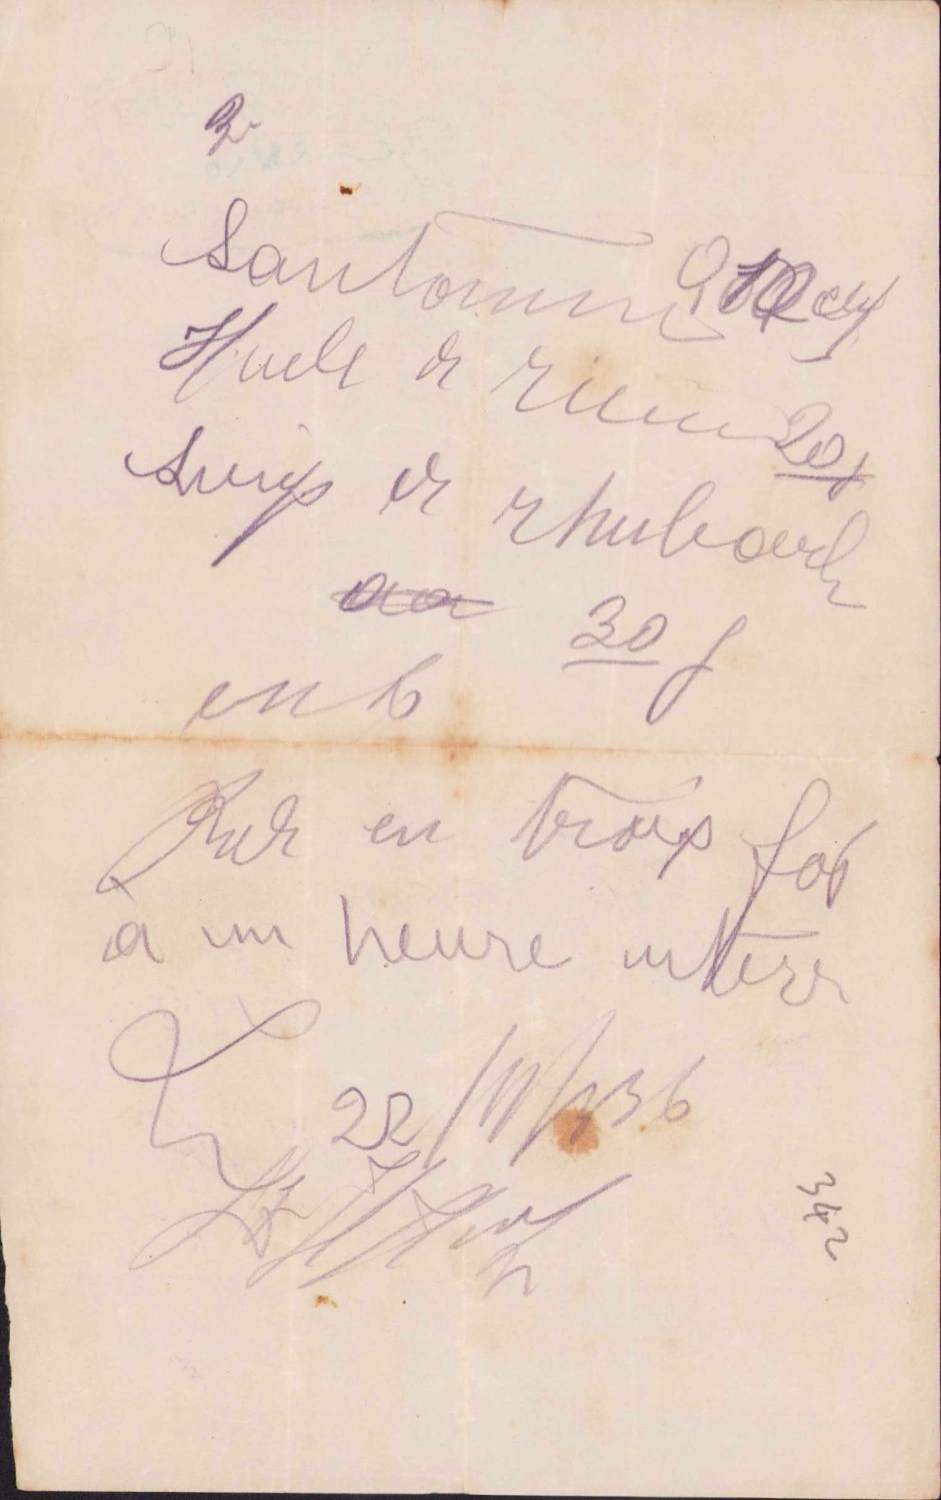 Santonine 0 10 cg
Huile de ricin 20 g
Sirop de rhubarb
aa 30 g
en b
en trois foi
à un heure interv
22/III/936
342